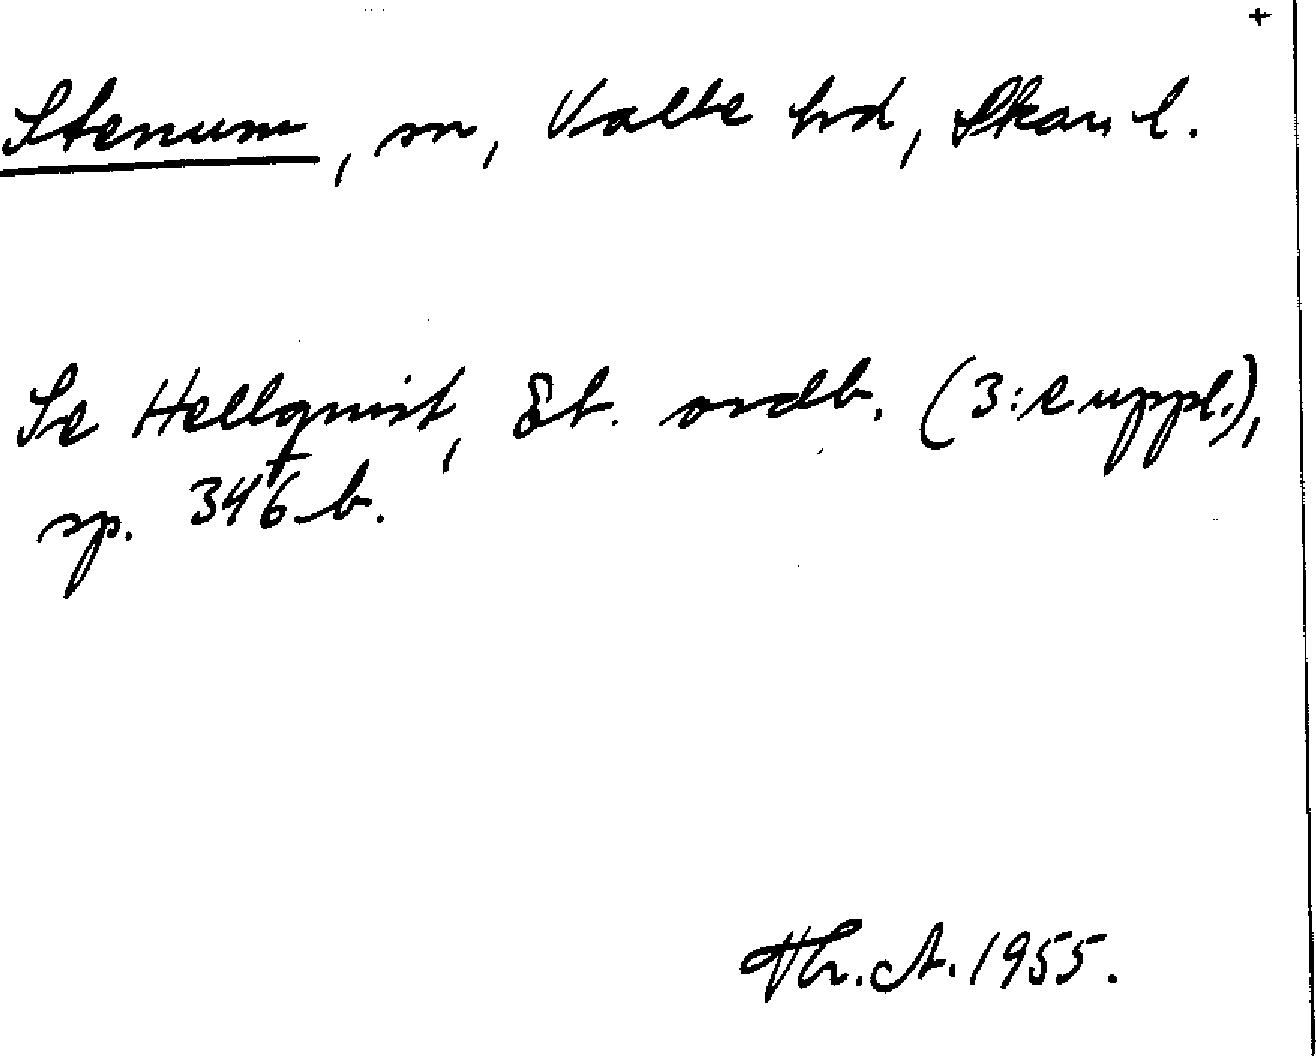 +
Stenum, sn, Valle hd, Skar. l.
Se Hellquist, Et. ordb. (3:e uppl.),
sp. 346 b.
Th. A. 1955.